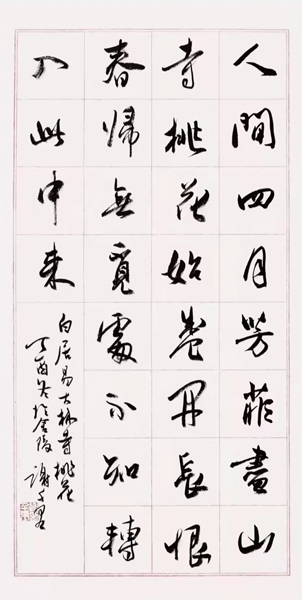 人間四月芳菲盡山
寺桃花始盛開長恨
春歸無覓處不知轉
入此中來
白居易大林寺桃花
丁酉冬於金陵 謝